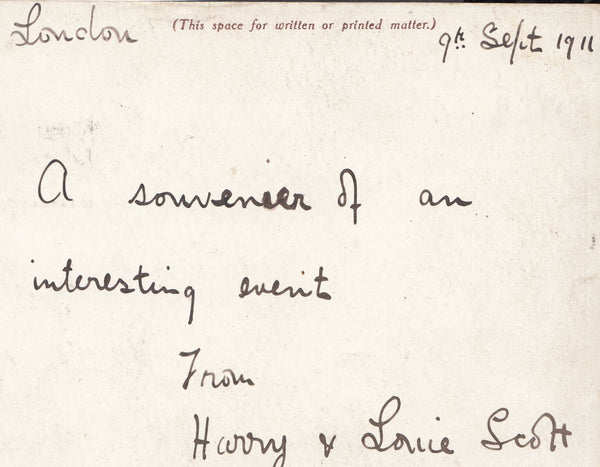 London
(This space for written or printed matter.)
9th Sept 1911
A souvenier of an
interesting event
From
Harry & Louie Scott